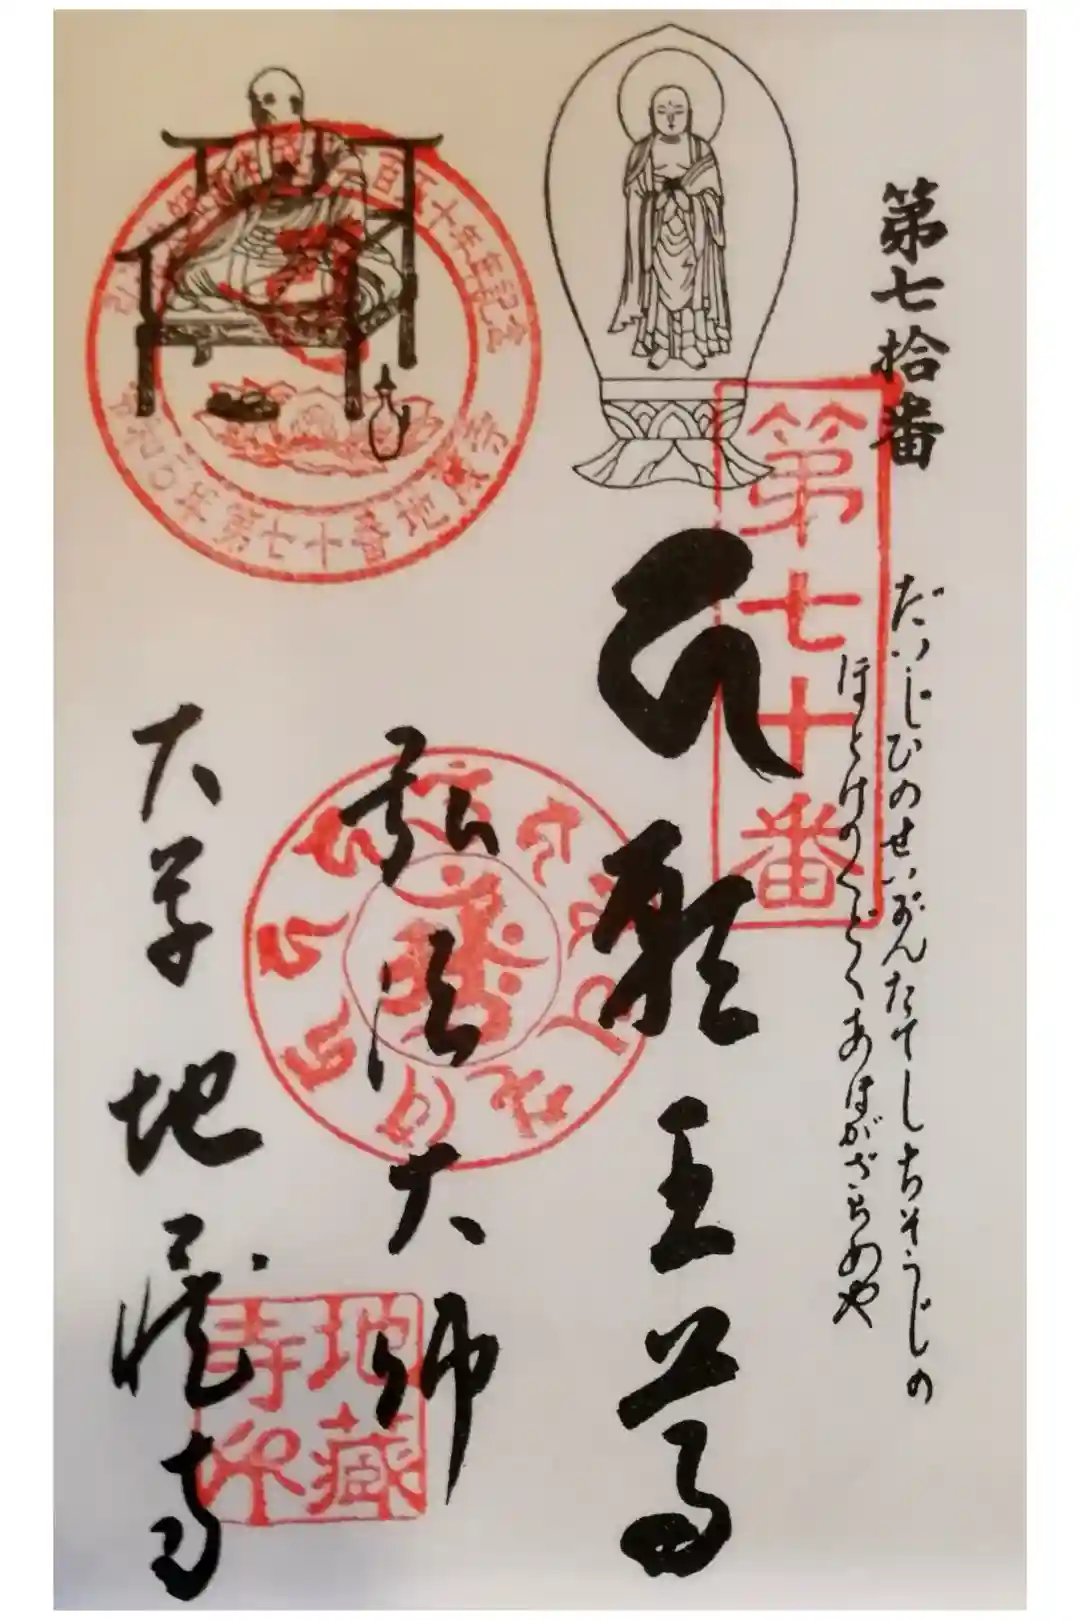 第七拾番
だいじひのせいがんたてしちぞうじの
ほとけのくどくあほがざらめや
第七十番
願王尊
弘法大師
大草 地蔵寺
百五十年記念
年第七十番地蔵寺
地藏寺印